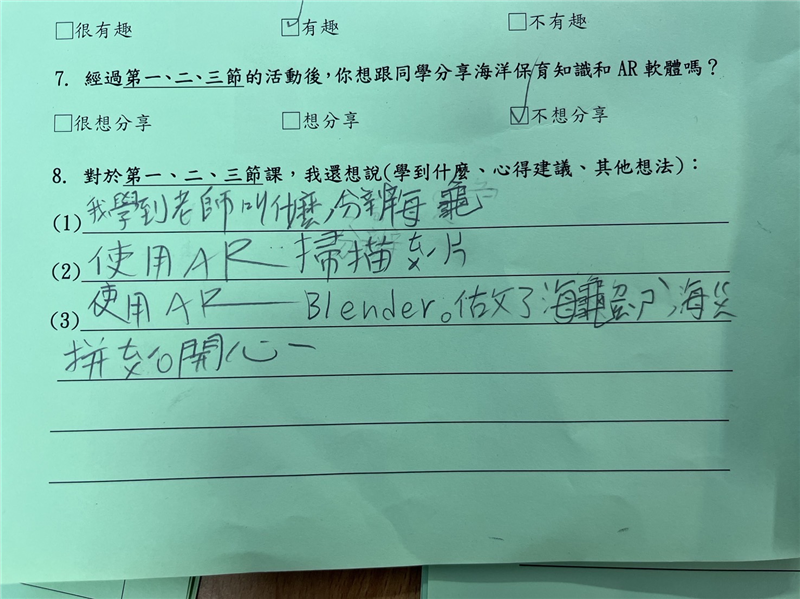 □很有趣 ☑有趣 □不有趣
7. 經過第一、二、三節的活動後,你想跟同學分享海洋保育知識和 AR 軟體嗎?
□很想分享 □想分享 ☑不想分享
8. 對於第一、二、三節課,我還想說(學到什麼、心得建議、其他想法):
(1) 我學到老師叫什麼,分辨海龜
(2) 使用AR 掃描卡片
(3) 使用AR Blender。做了海龜
拼 開心